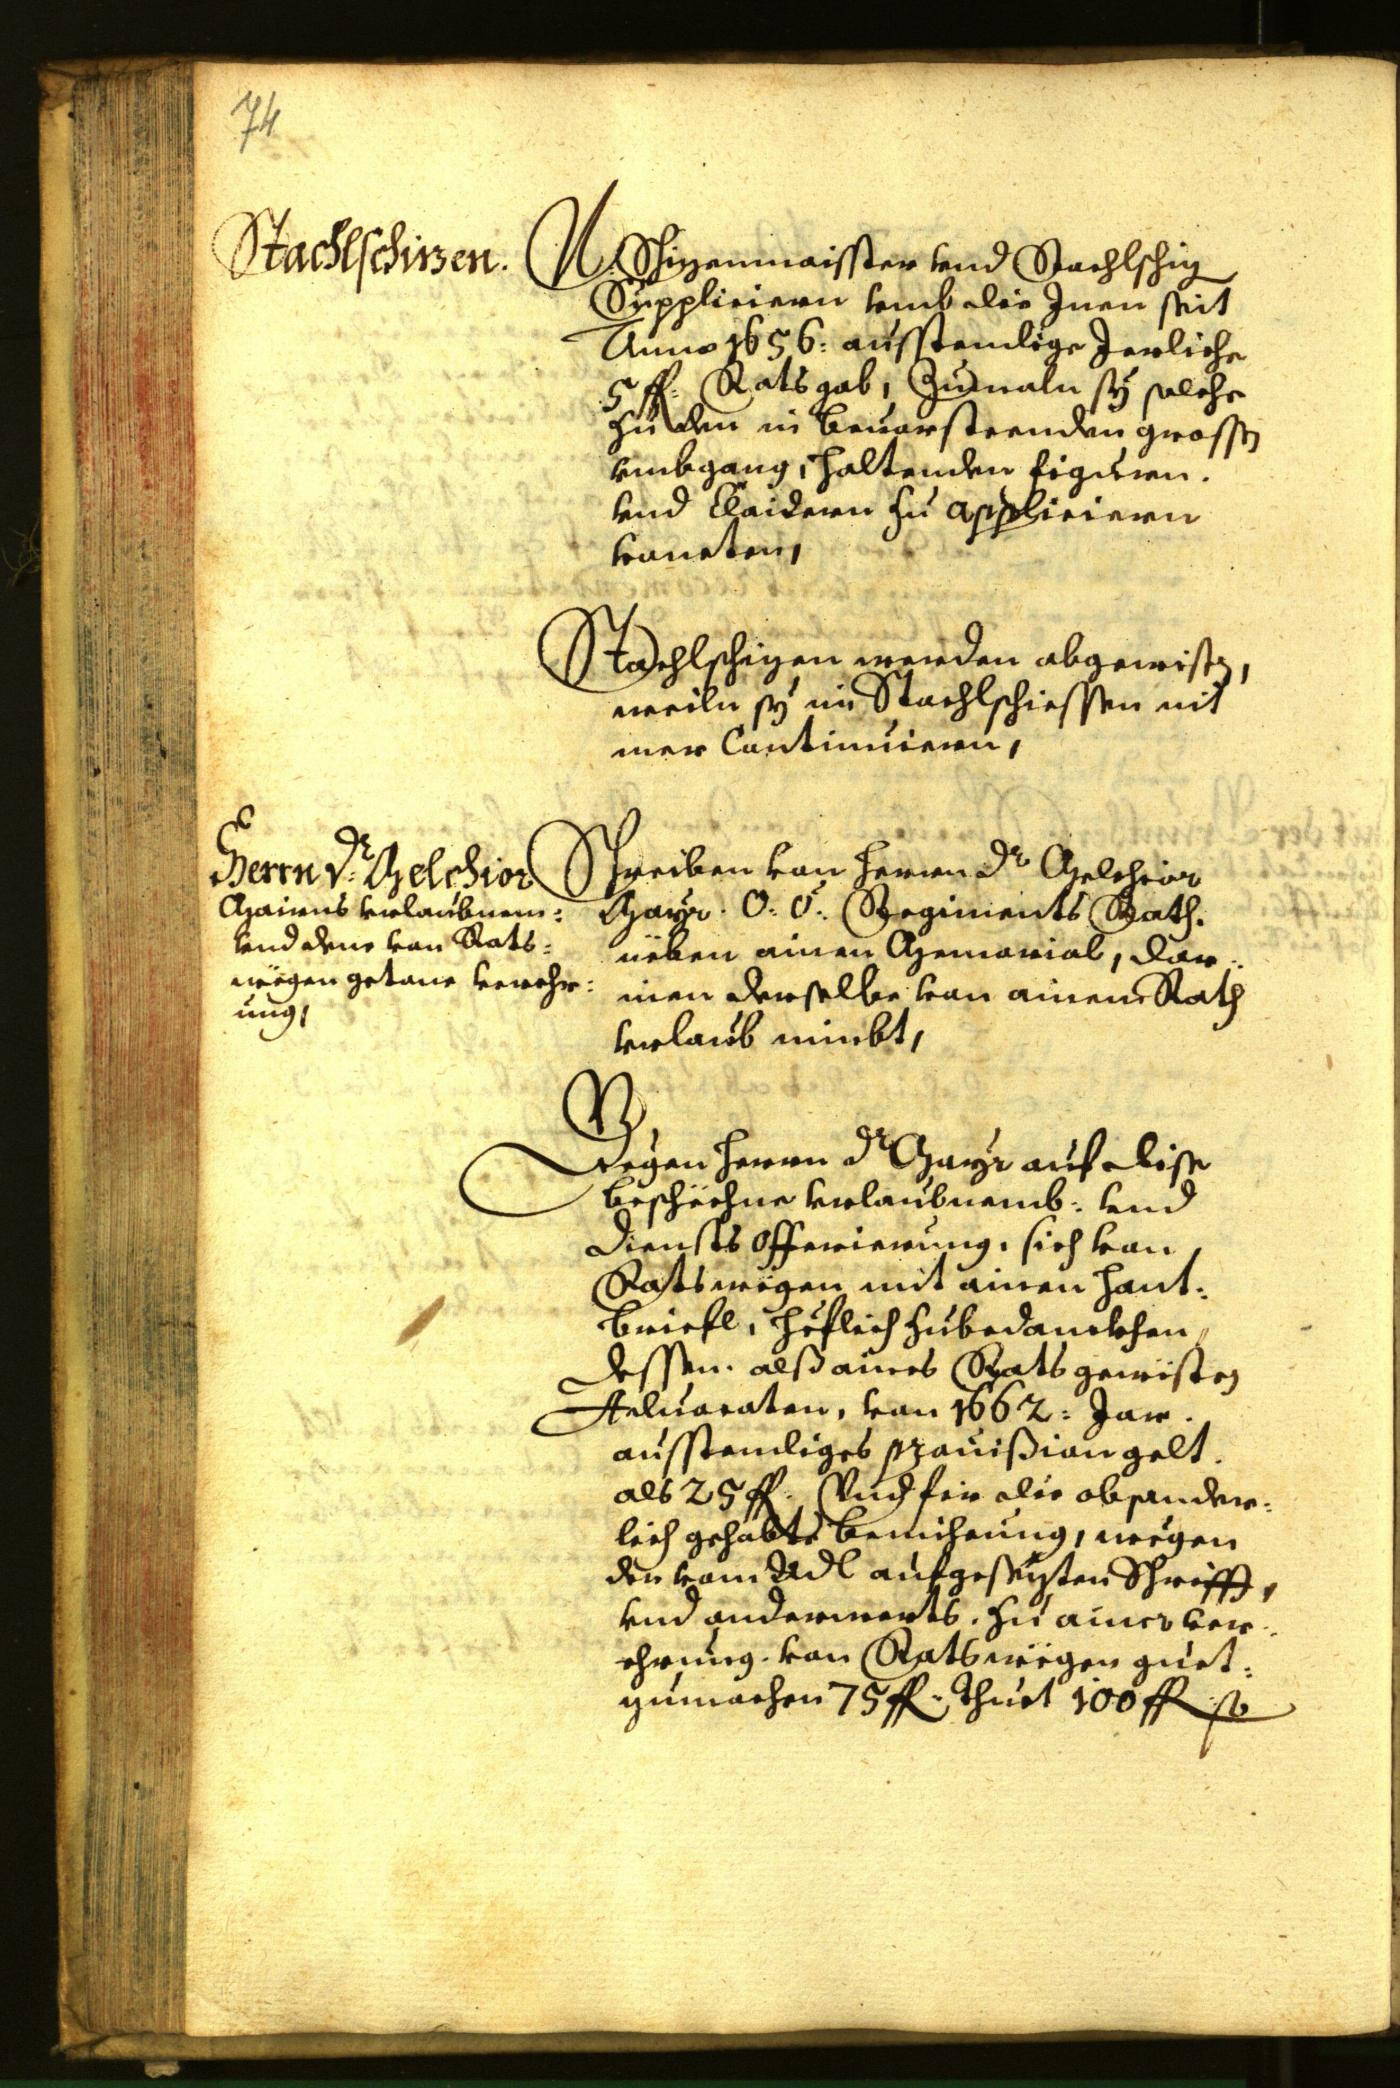 74
Stachlschizen.
N. Schizenmaisster vnd Stachlschiz
Supplicieren vmb die Jnen seit
Anno 1656: ausstendige Jerliche
5 fl: Ratsgab, Zumaln sÿ solche
zu den in beuorsteenden grossen
vmbgang, haltenden figuren.
vnd Claidern zu appliciern
konnten,
Stachlschizen werden abgewisen,
weiln sÿ im Stachlschiessen nit
mer Continuieren,
Herrn Dr: Melchior
Mairns vrlaubnem:
vnd dene von Rats:
wëgen getane verehr:
ung,
Schreiben von herrn Dr Melchior
Mayr. O: Ö: Regiments Rath.
nëben ainen Memorial, dar:
innen derselbe von ainem Rath
vrlaub nimbt,
Wegen herrn Dr Mayr auf dise
beschëchne vrlaubnemb: vnd
diensts Offerierung, sich von
Ratswëgen mit ainen hant:
briefl, höflich zubedanckhen,
dessen. alß aines Rats gewisten
Aduocaten, von 1662: Jar.
ausstendiges prouißion gelt.
als 25 fl. Vnd fir die absonder:
lich gehabte bemiehung, wegen
der vom Adl aufgesezten Schrifft,
vnd anderwerts. zu ainer ver:
ehrung. von Ratswëgen guet:
zumachen 75 fl. Thuet 100 fl